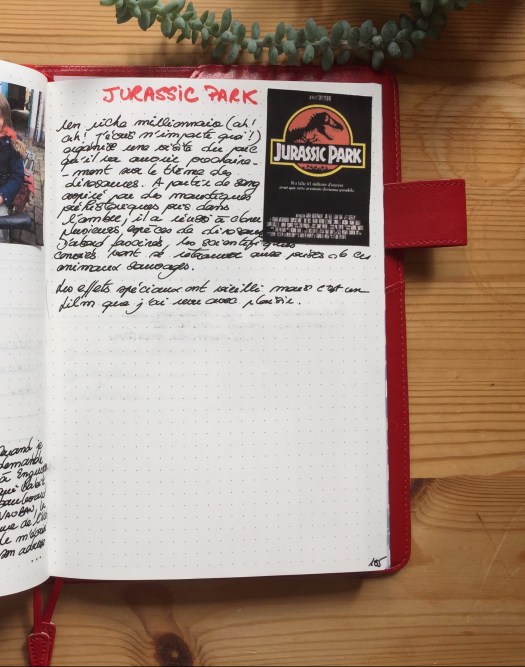 JURASSIC PARK
Un riche millionnaire (ah!
ah! j'écris n'importe quoi!)
organise une visite du parc
qu'il va ouvrir prochaine-
-ment sur le thème des
dinosaures. A partir de sang
aspiré par des moustiques
préhistoriques pris dans
l'ambre, il a réussi à cloner
plusieurs espèces de dinosaures
D'abord fascinés, les scientifiques
conviés vont se retrouver aux prises de ces
animaux sauvages.
Les effets spéciaux ont vieilli mais c'est un
film que j'ai revu avec plaisir.
JURASSIC PARK
Quand je
demande
à
qui
VAUBAN, la
rue de
le
son adresse
...
165